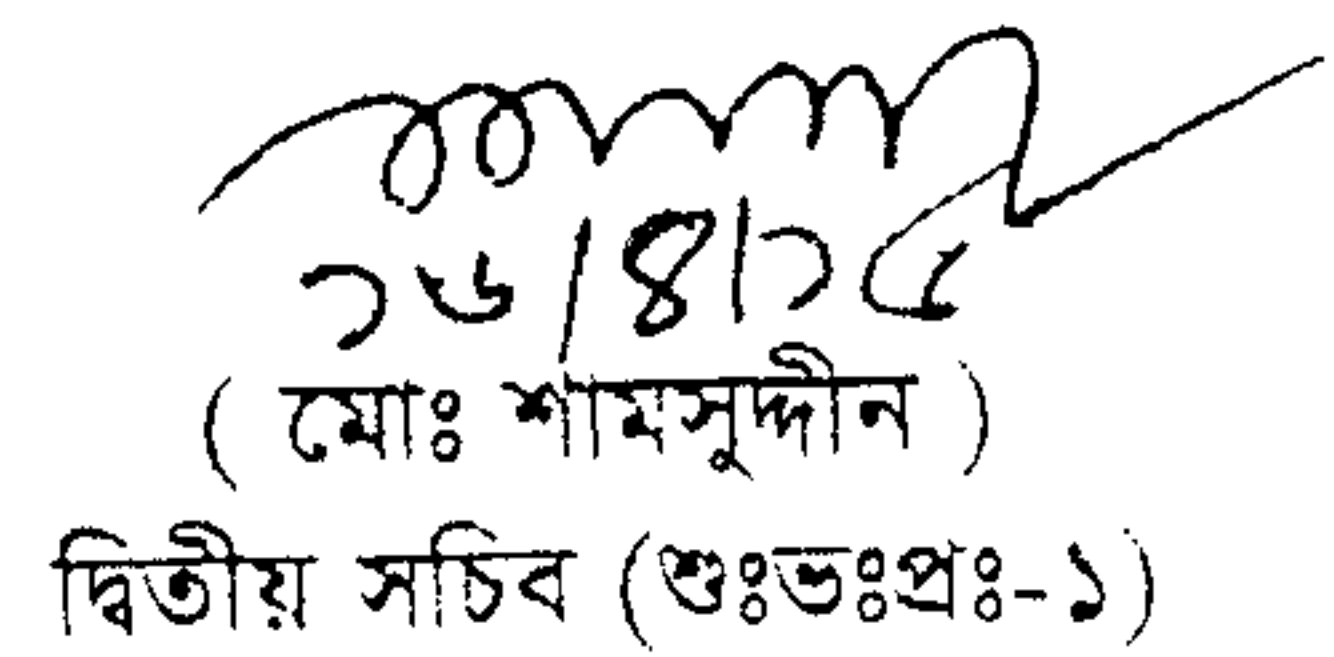 ১৬/৪/১৫
( মোঃ শামসুদ্দীন )
দ্বিতীয় সচিব (শুঃভঃপ্রঃ-১)